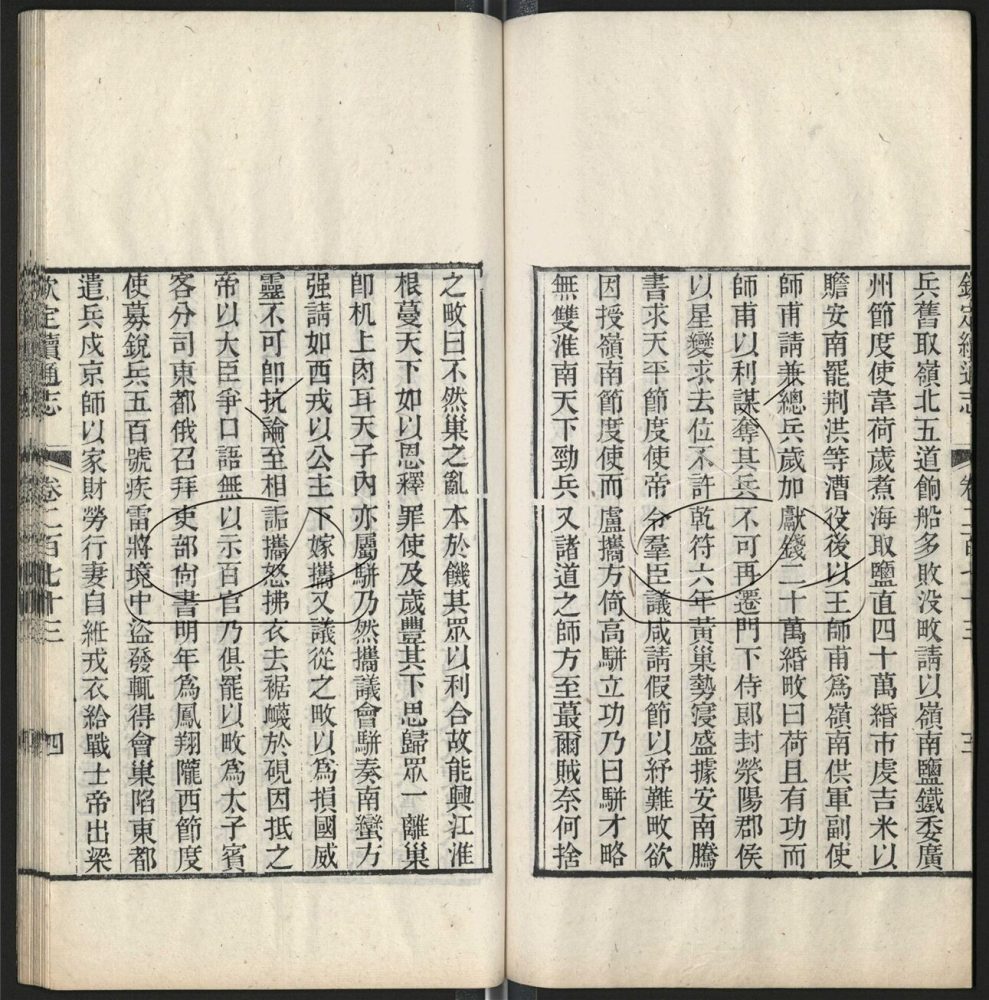 欽定續通志 卷二百七十三 三
兵舊取嶺北五道餉船多敗没畋請以嶺南鹽鐵委廣
州節度使韋荷歲煮海取鹽直四十萬緡市虔吉米以
贍安南罷荆洪等漕役後以王師甫爲嶺南供軍副使
師甫請兼總兵歲加獻錢二十萬緡畋曰荷且有功而
師甫以利謀奪其兵不可再遷門下侍郎封滎陽郡侯
以星變求去位不許乾符六年黃巢勢寖盛據安南騰
書求天平節度使帝令羣臣議咸請假節以紓難畋欲
因授嶺南節度使而盧攜方倚高駢立功乃曰駢才略
無雙淮南天下勁兵又諸道之師方至蕞爾賊奈何捨
之畋曰不然巢之亂本於饑其眾以利合故能興江淮
根蔓天下如以恩釋罪使及歲豐其下思歸眾一離巢
卽机上肉耳天子內亦屬駢乃然攜議會駢奏南蠻方
强請如西戎以公主下嫁攜又議從之畋以爲損國威
靈不可卽抗論至相詬攜怒拂衣去裾㡇於硯因抵之
帝以大臣爭口語無以示百官乃俱罷以畋爲太子賓
客分司東都俄召拜吏部尙書明年爲鳳翔隴西節度
使募銳兵五百號疾雷將境中盜發輒得會巢陷東都
遣兵戍京師以家財勞行妻自紝戎衣給戰士帝出梁
欽定續通志 卷二百七十三 四